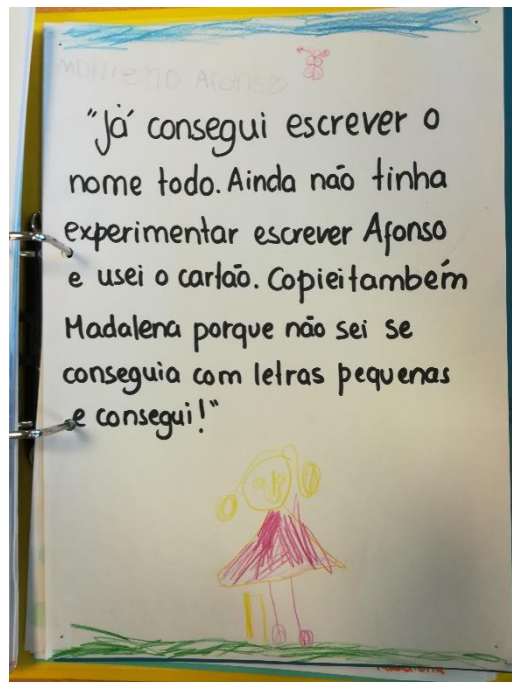 Afonso
"Já consegui escrever o
nome todo. Ainda não tinha
experimentar escrever Afonso
e usei o cartão. Copiei também
Madalena porque não sei se
conseguia com letras pequenas
e consegui!"